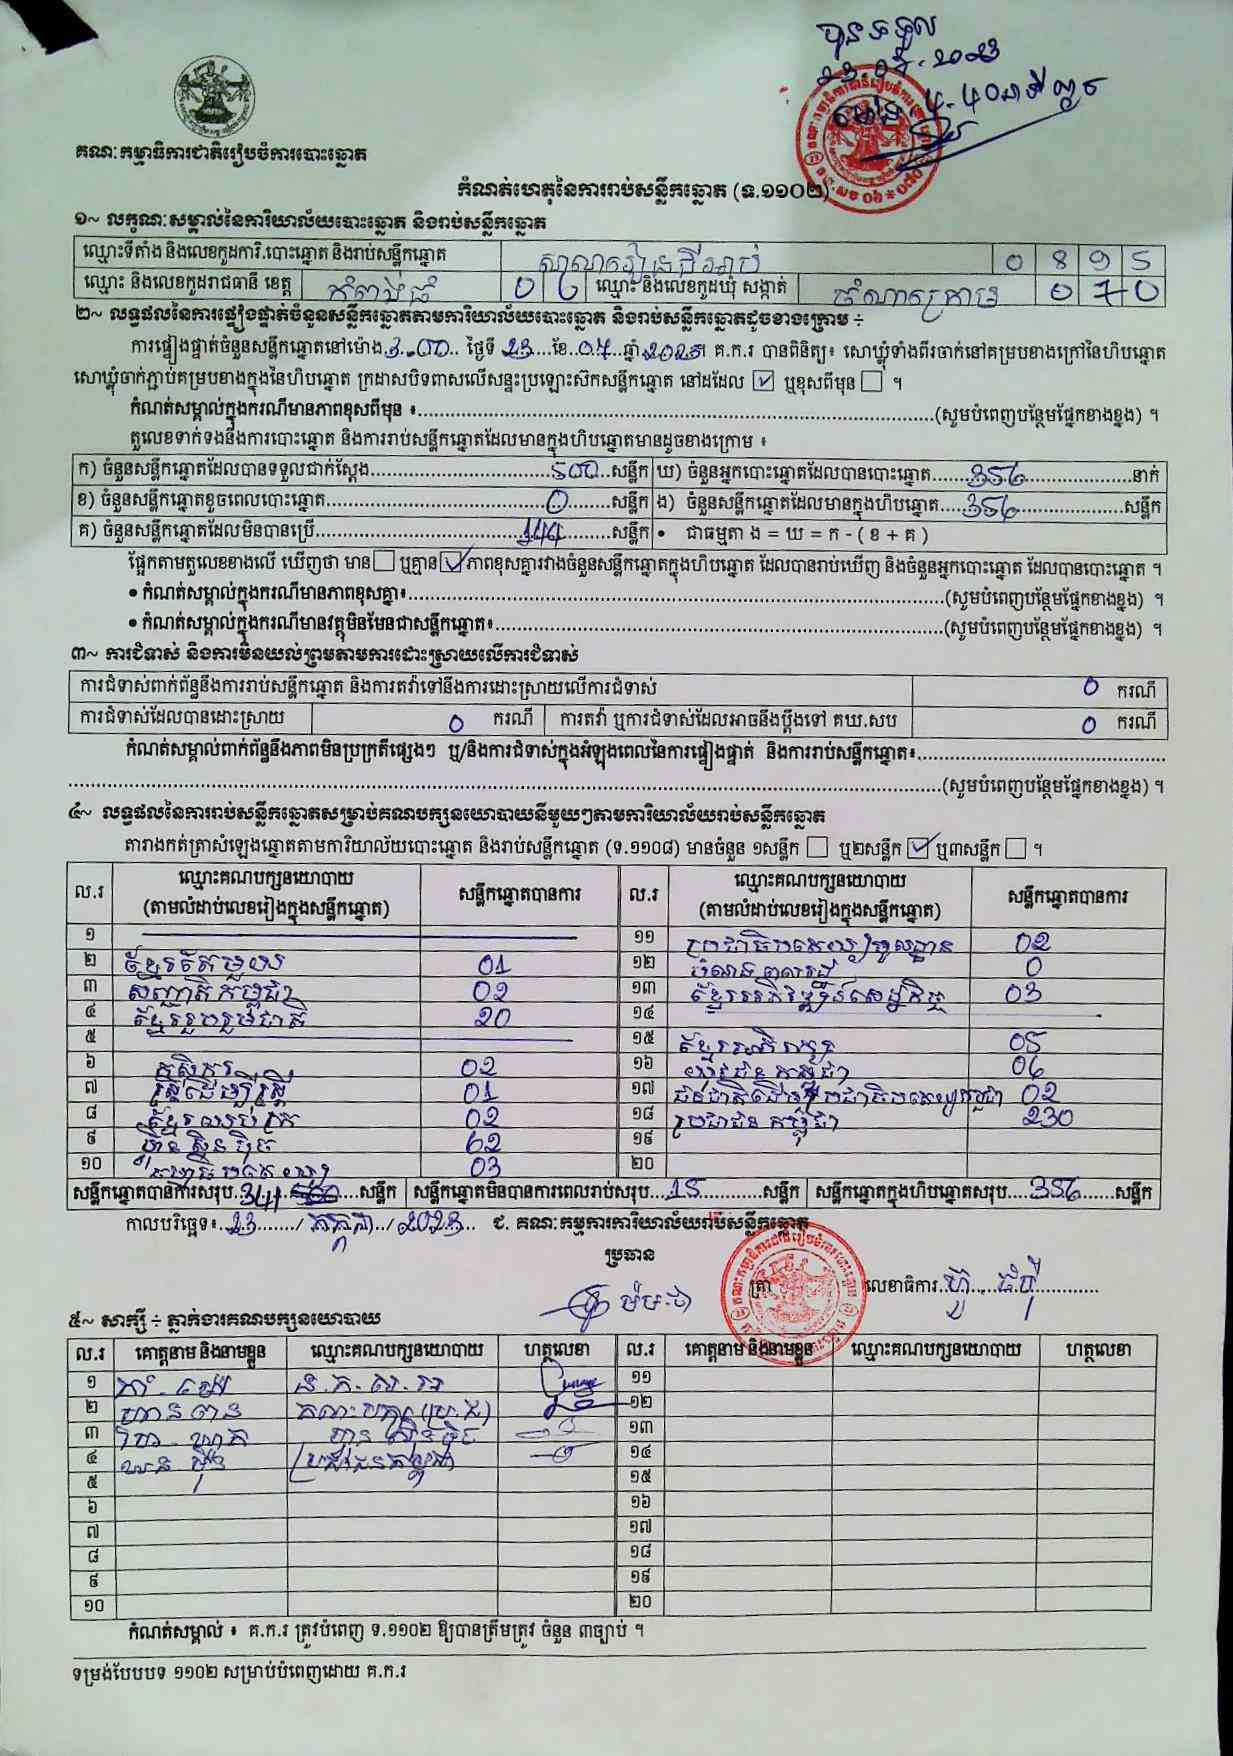 បានទទួល
គណៈកម្មាធិការជាតិរៀបចំការបោះឆ្នោត
កំណត់ហេតុនៃការរាប់សន្លឹកឆ្នោត (ទ.១១០២)
១~ លក្ខណៈសម្គាល់នៃការិយាល័យបោះឆ្នោត និងរាប់សន្លឹកឆ្នោត
ឈ្មោះទីតាំង និងលេខកូដការិ.បោះឆ្នោត និងរាប់សន្លឹកឆ្នោត 0 8 9 5
ឈ្មោះ និងលេខកូដរាជធានី ខេត្ត កំពង់ធំ 0 6 ឈ្មោះ និងលេខកូដឃុំ សង្កាត់ ចំណារក្រោម 0 7 0
២~ លទ្ធផលនៃការផ្ទៀងផ្ទាត់ចំនួនសន្លឹកឆ្នោតតាមការិយាល័យបោះឆ្នោត និងរាប់សន្លឹកឆ្នោតដូចខាងក្រោម ÷
ការផ្ទៀងផ្ទាត់ចំនួនសន្លឹកឆ្នោតនៅម៉ោង 3:00 ថ្ងៃទី 23 ខែ 07 ឆ្នាំ 2023 គ.ក.រ បានពិនិត្យ៖ សោឃ្លុំទាំងពីរចាក់នៅគម្របខាងក្រៅនៃហិបឆ្នោត
សោឃ្លុំចាក់ភ្ជាប់គម្របខាងក្នុងនៃហិបឆ្នោត ក្រដាសបិទពាសលើសន្ទះប្រឡោះស៊កសន្លឹកឆ្នោត នៅដដែល ☑ ឬខុសពីមុន ☐ ។
កំណត់សម្គាល់ក្នុងករណីមានភាពខុសពីមុន ៖ (សូមបំពេញបន្ថែមផ្នែកខាងខ្នង) ។
តួលេខទាក់ទងនឹងការបោះឆ្នោត និងការរាប់សន្លឹកឆ្នោតដែលមានក្នុងហិបឆ្នោតមានដូចខាងក្រោម ៖
ក) ចំនួនសន្លឹកឆ្នោតដែលបានទទួលជាក់ស្តែង 500 សន្លឹក ឃ) ចំនួនអ្នកបោះឆ្នោតដែលបានបោះឆ្នោត 356 នាក់
ខ) ចំនួនសន្លឹកឆ្នោតខូចពេលបោះឆ្នោត 0 សន្លឹក ង) ចំនួនសន្លឹកឆ្នោតដែលមានក្នុងហិបឆ្នោត 356 សន្លឹក
គ) ចំនួនសន្លឹកឆ្នោតដែលមិនបានប្រើ 144 សន្លឹក • ជាធម្មតា ង = ឃ = ក - ( ខ + គ )
ផ្អែកតាមតួលេខខាងលើ ឃើញថា មាន ☐ ឬគ្មាន ☑ ភាពខុសគ្នារវាងចំនួនសន្លឹកឆ្នោតក្នុងហិបឆ្នោត ដែលបានរាប់ឃើញ និងចំនួនអ្នកបោះឆ្នោត ដែលបានបោះឆ្នោត ។
• កំណត់សម្គាល់ក្នុងករណីមានភាពខុសគ្នា៖ (សូមបំពេញបន្ថែមផ្នែកខាងខ្នង) ។
• កំណត់សម្គាល់ក្នុងករណីមានវត្ថុមិនមែនជាសន្លឹកឆ្នោត៖ (សូមបំពេញបន្ថែមផ្នែកខាងខ្នង) ។
៣~ ការជំទាស់ និងការមិនយល់ព្រមតាមការដោះស្រាយលើការជំទាស់
ការជំទាស់ពាក់ព័ន្ធនឹងការរាប់សន្លឹកឆ្នោត និងការតវ៉ាទៅនឹងការដោះស្រាយលើការជំទាស់ 0 ករណី
ការជំទាស់ដែលបានដោះស្រាយ 0 ករណី ការតវ៉ា ឬការជំទាស់ដែលអាចនឹងប្តឹងទៅ គឃ.សប 0 ករណី
កំណត់សម្គាល់ពាក់ព័ន្ធនឹងភាពមិនប្រក្រតីផ្សេងៗ ឬ/និងការជំទាស់ក្នុងអំឡុងពេលនៃការផ្ទៀងផ្ទាត់ និងការរាប់សន្លឹកឆ្នោត៖
(សូមបំពេញបន្ថែមផ្នែកខាងខ្នង) ។
៤~ លទ្ធផលនៃការរាប់សន្លឹកឆ្នោតសម្រាប់គណបក្សនយោបាយនីមួយៗតាមការិយាល័យរាប់សន្លឹកឆ្នោត
តារាងកត់ត្រាសំឡេងឆ្នោតតាមការិយាល័យបោះឆ្នោត និងរាប់សន្លឹកឆ្នោត (ទ.១១០៨) មានចំនួន ១សន្លឹក ☐ ឬ២សន្លឹក ☑ ឬ៣សន្លឹក ☐ ។
ល.រ ឈ្មោះគណបក្សនយោបាយ (តាមលំដាប់លេខរៀងក្នុងសន្លឹកឆ្នោត) សន្លឹកឆ្នោតបានការ ល.រ ឈ្មោះគណបក្សនយោបាយ (តាមលំដាប់លេខរៀងក្នុងសន្លឹកឆ្នោត) សន្លឹកឆ្នោតបានការ
១ ១១ ប្រជាធិបតេយ្យមូលដ្ឋាន 02
២ ខ្មែរតែមួយ 01 ១២ 0
៣ សញ្ជាតិកម្ពុជា 02 ១៣ ខ្មែរអភិវឌ្ឍន៍សេដ្ឋកិច្ច 03
៤ ខ្មែររួបរួមជាតិ 20 ១៤
៥ ១៥ 05
៦ កសិករ 02 ១៦ យុវជនកម្ពុជា 06
៧ ស្ត្រីដើម្បីស្ត្រី 01 ១៧ 02
៨ ខ្មែរឈប់ក្រ 02 ១៨ ប្រជាជនកម្ពុជា 230
៩ ហ៊្វុនស៊ិនប៉ិច 62 ១៩
១០ 03 ២០
សន្លឹកឆ្នោតបានការសរុប 341 សន្លឹក សន្លឹកឆ្នោតមិនបានការពេលរាប់សរុប 15 សន្លឹក សន្លឹកឆ្នោតក្នុងហិបឆ្នោតសរុប 356 សន្លឹក
កាលបរិច្ឆេទ៖ 23 / កក្កដា / 2023 ជ. គណៈកម្មការការិយាល័យរាប់សន្លឹកឆ្នោត
ប្រធាន
ត្រា លេខាធិការ
៥~ សាក្សី ÷ ភ្នាក់ងារគណបក្សនយោបាយ
ល.រ គោត្តនាម និងនាមខ្លួន ឈ្មោះគណបក្សនយោបាយ ហត្ថលេខា ល.រ គោត្តនាម និងនាមខ្លួន ឈ្មោះគណបក្សនយោបាយ ហត្ថលេខា
១ ១១
២ ១២
៣ ១៣
៤ ប្រជាជនកម្ពុជា ១៤
៥ ១៥
៦ ១៦
៧ ១៧
៨ ១៨
៩ ១៩
១០ ២០
កំណត់សម្គាល់ ៖ គ.ក.រ ត្រូវបំពេញ ទ.១១០២ ឱ្យបានត្រឹមត្រូវ ចំនួន ៣ច្បាប់ ។
ទម្រង់បែបបទ ១១០២ សម្រាប់បំពេញដោយ គ.ក.រ